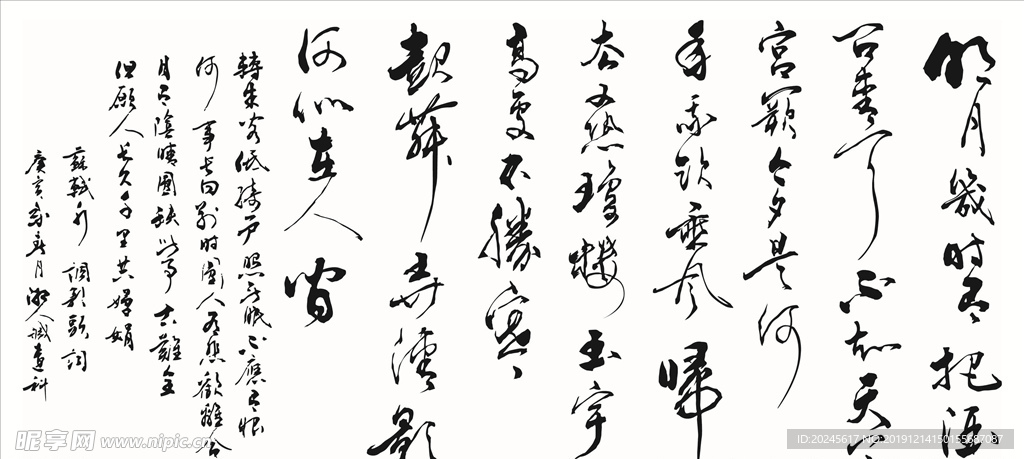 明月幾时有把酒
问青天不知天上
宮闕今夕是何
年我欲乘风歸
去又恐瓊樓玉宇
高處不勝寒
起舞弄清影
何似在人间
轉朱阁低綺户照无眠不應有恨
何事长向别时圆人有悲歡離合
月有陰晴圆缺此事古難全
但願人长久千里共嬋娟
蘇軾水调歌头词
昵享网 www.nipic.cn
ID:20245617 NO:20191214150155687087